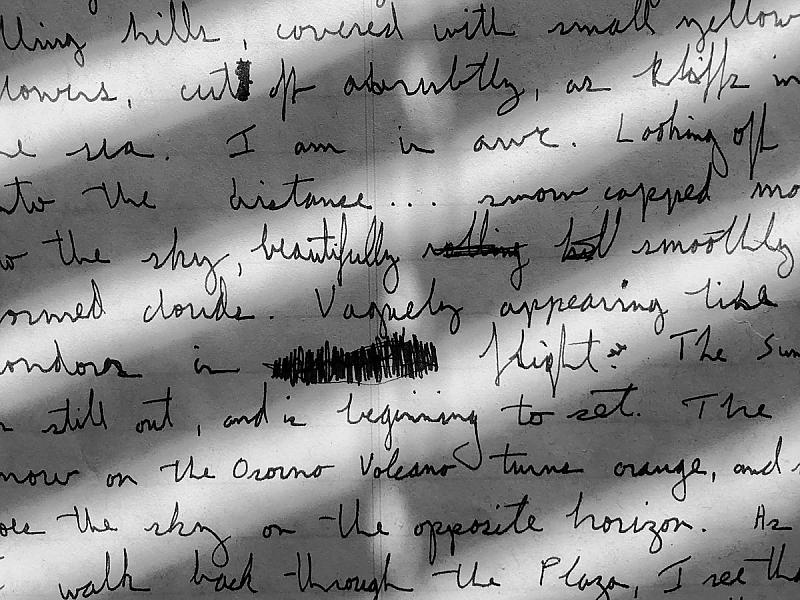 lling hills, covered with small yellow
lowers, cut off abruptly, as kliffs in
he sea. I am in awe. Looking off
nto the distance... snow capped mo
w the sky, beautifully rolling but smoothly
ormed clouds. Vaguely appearing like
ondors in flight. The Sun
still out, and is beginning to set. The
now on the Osorno Volcano turns orange, and s
oes the sky on the opposite horizon. As
I walk back through the Plaza, I see tha